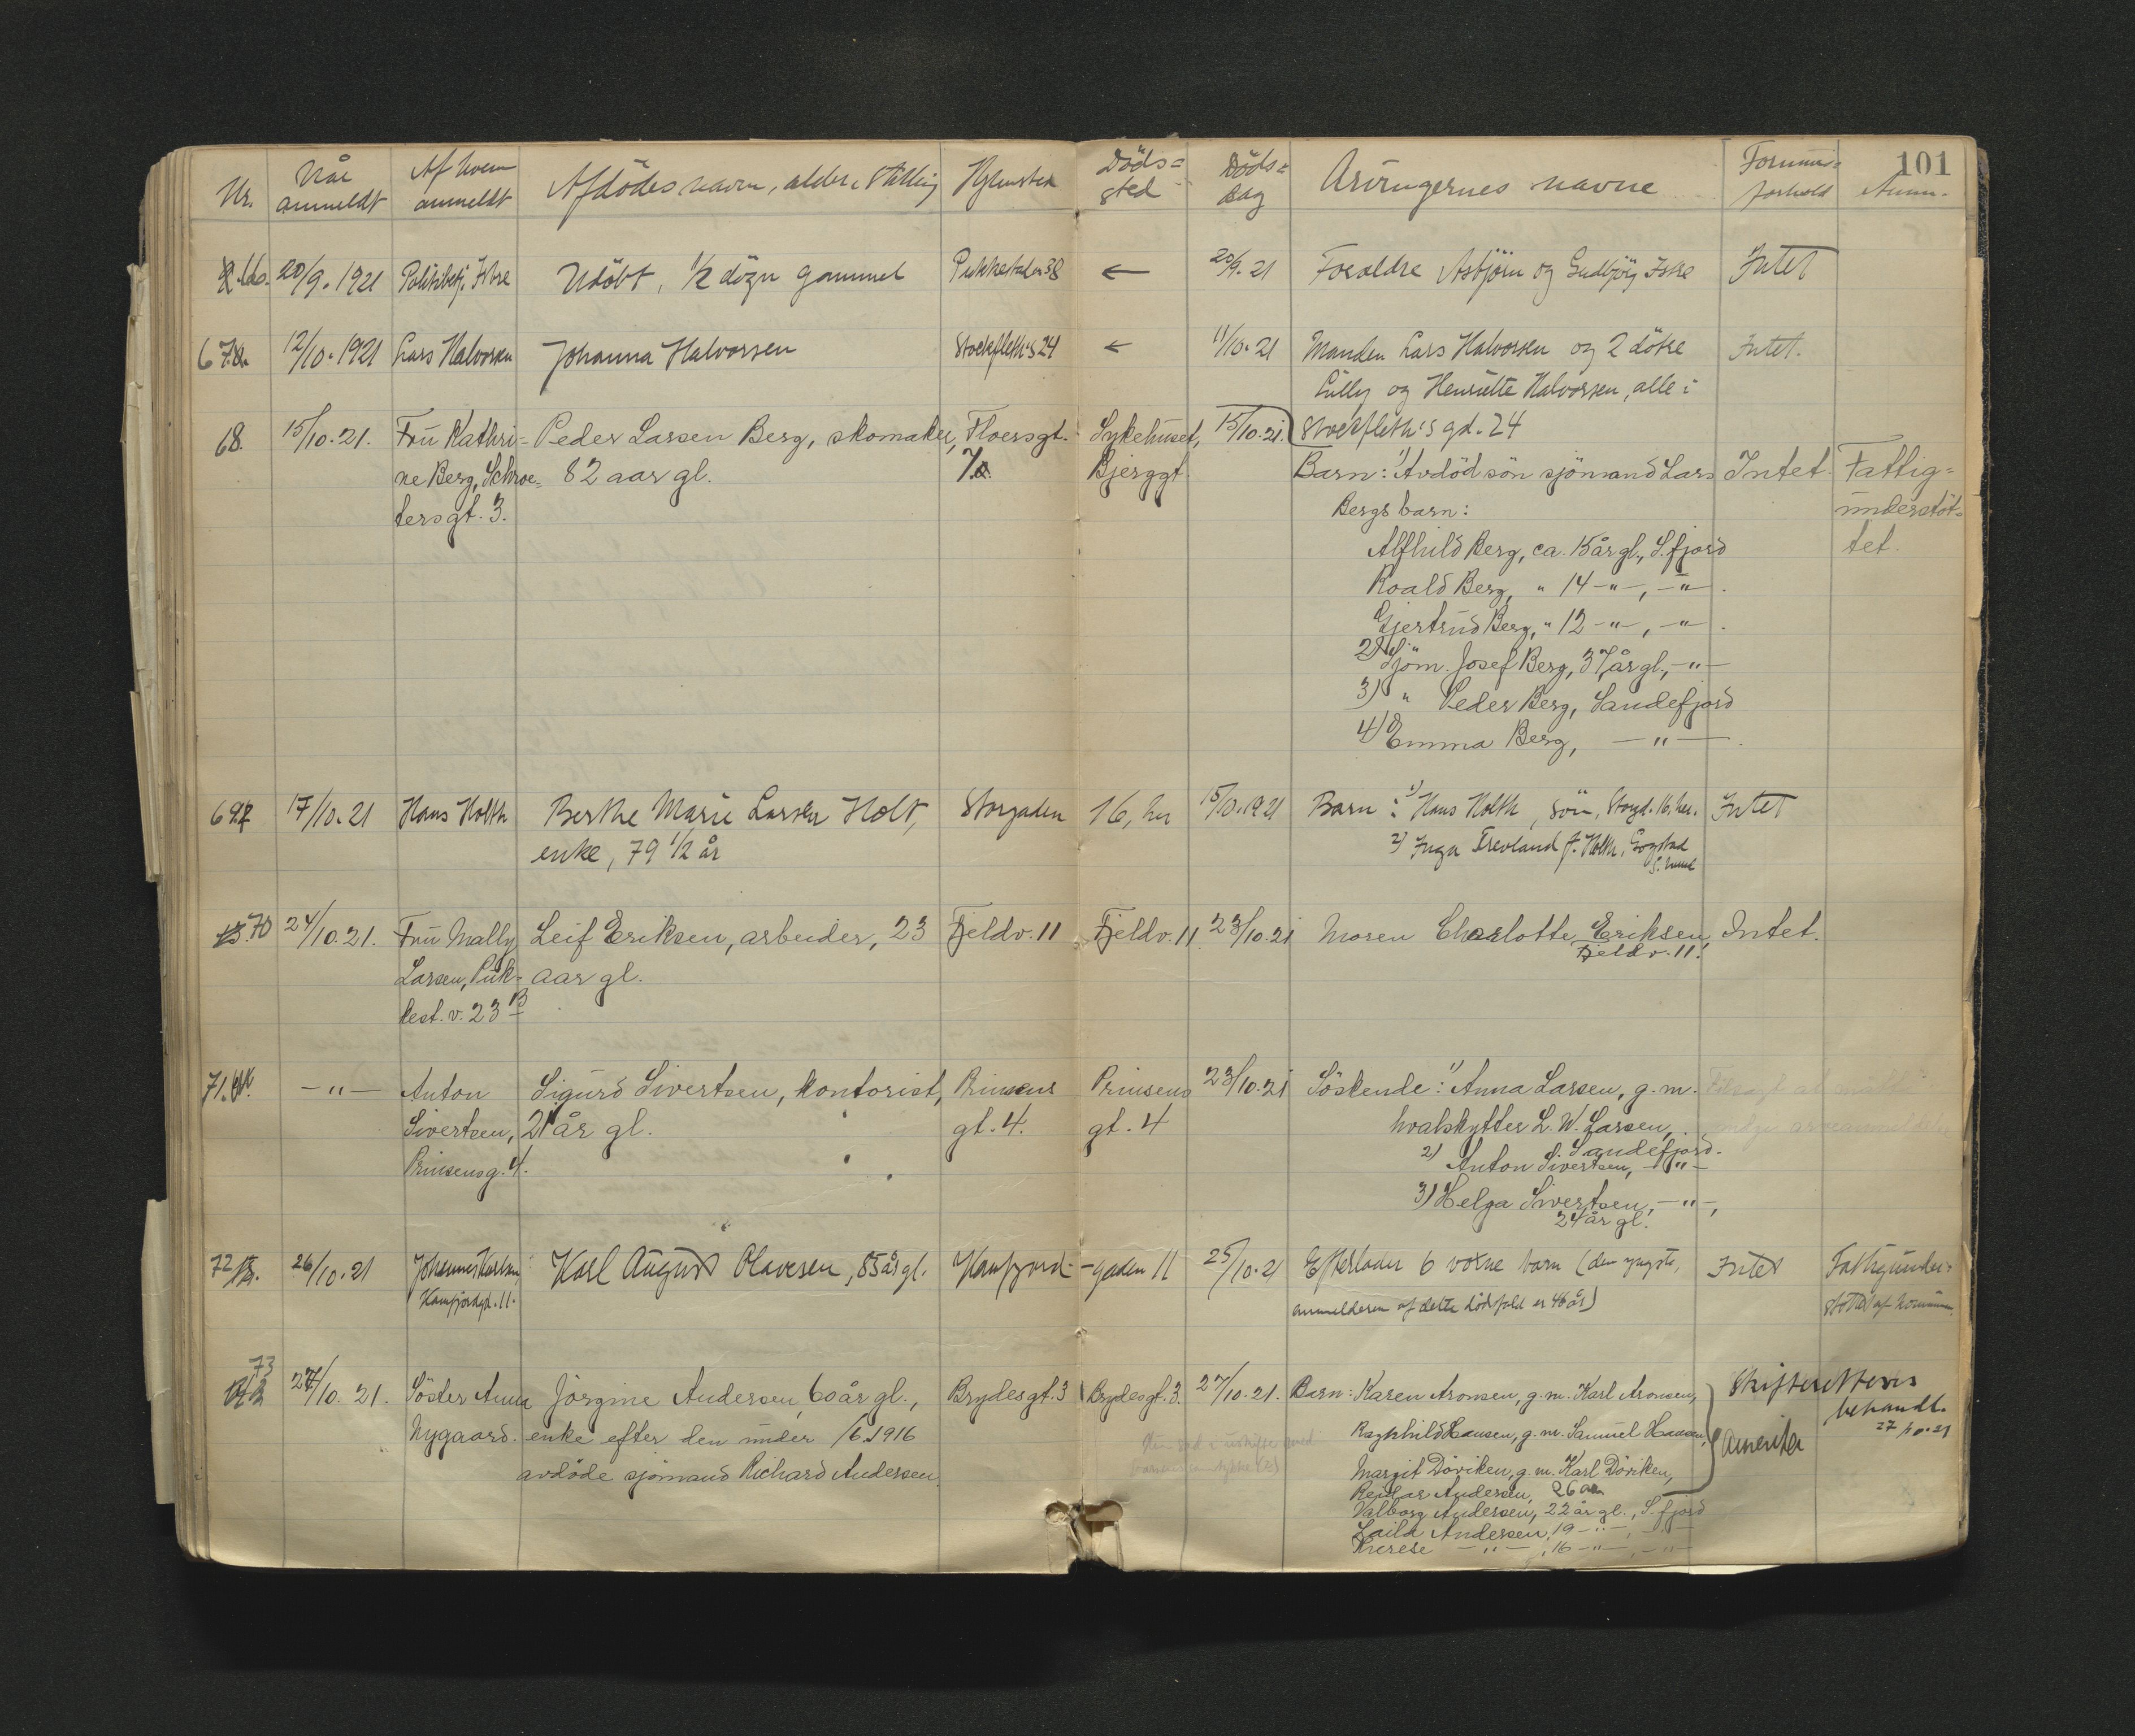 101
Nr.
Når anmeldt
Af hvem anmeldt
Afdödes navn, alder, stilling
Hjemsted
Döds=sted
Döds=dag
Arvingernes navne
Formues=forhold
Anm.
66. 20/9. 1921 Politibetj. Udöbt, 1/2 dögn gammel Pukkestadv 38 ← 20/9. 21 Forældre Asbjörn og Gudbjörg Intet
67. 12/10. 1921 Lars Halvorsen Johanna Halvorsen Stockfleth's 24 ← 11/10. 21 Manden Lars Halvorsen og 2 dötre Intet.
Lilly og Henriette Halvorsen, alle i
Stockfleth's gd. 24
68. 15/10. 21. Fru Kathri= Peder Larsen Berg, skomaker, Floersgt. Sykehuset, 15/10. 21.
ne Berg, Schroe= 82 aar gl. 7a. Bjerggt. Barn: 1) Avdöd sön sjömand Lars Intet. Fattig=
tersgt. 3. Bergs barn: understöt=
Alfhild Berg, ca. 15 år gl., S.fjord tet.
Roald Berg, " 14 -"-, -"- .
Gjertrud Berg, " 12 -"-, -"- .
2) Sjöm. Josef Berg, 37 år gl., -"-
3) " Peder Berg, Sandefjord
4) Emma Berg, -"- .
69. 17/10. 21 Hans Holth Berthe Marie Larsen Holt, Storgaden 16, her 15/10. 1921 Barn: 1) Hans Holth, sön, Storgd. 16, her. Intet
enke, 79 1/2 år 2) Inga Trevland f. Holth, Gogstad
70 24/10. 21. Fru Mally Leif Eriksen, arbeider, 23 Fjeldv. 11 Fjeldv. 11. 23/10. 21 Moren Charlotte Eriksen, Intet.
Larsen, Puk= aar gl. Fjeldv. 11.
kest. v. 23 B
71. -"- Anton Sigurd Sivertsen, kontorist, Prinsens Prinsens 23/10. 21 Söskende: 1) Anna Larsen, g. m.
Sivertsen, 21 år gl. gt. 4. gt. 4 hvalskytter L. W. Larsen,
Prinsensg. 4. Sandefjord.
2) Anton Sivertsen, -"-
3) Helga Sivertsen, -"-,
24 år gl.
72 26/10. 21 Johannes Karlsen Karl August Olavesen, 85 år gl. Kamfjord- -gaden 11 25/10. 21 Efterlader 6 voksne barn (den yngste, Intet Fattigunder=
Kamfjordgd. 11. anmelderen af dette dödsfald er 46 år) stöttet af kommunen.
73
27/10. 21. Söster Anna Jörgine Andersen, 60 år gl., Brydesgt. 3 Brydesgt. 3. 27/10. 21. Barn: Karen Aronsen, g. m. Karl Aronsen, Skifterettens
Nygaard. enke efter den under /6. 1916 Ragnhild Hansen, g. m. Samuel Hansen, behandl.
avdöde sjömand Richard Andersen. 27/10. 21
Margit Döviken, g. m. Karl Döviken, Amerika
Reidar Andersen, 26 år
Valborg Andersen, 22 år gl., S.fjord
Laila Andersen, 19 -"-, -"-
Therese -"-, 16 -"-, -"-